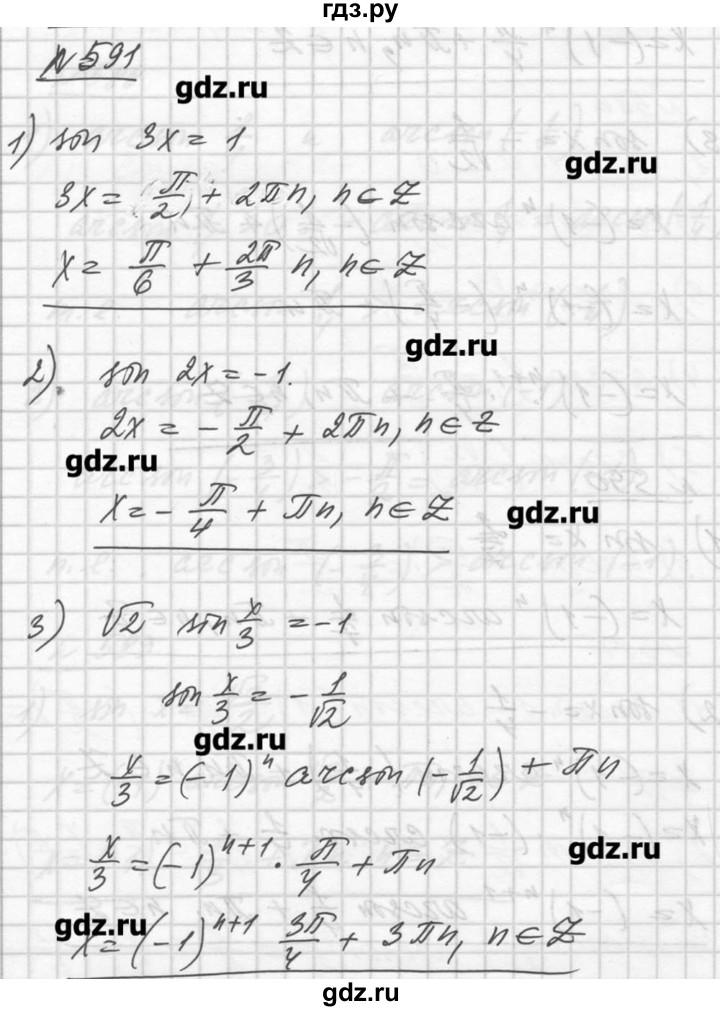 гдз.ру
N 591
gdz.ru
1) sin 3x = 1
gdz.ru
3x = π/2 + 2πn, n ∈ Z
x = π/6 + 2π/3 n, n ∈ Z
gdz.ru
2). sin 2x = -1.
2x = -π/2 + 2πn, n ∈ Z
gdz.ru
x = -π/4 + πn, n ∈ Z
gdz.ru
3) √2 sin x/3 = -1
sin x/3 = -1/√2
gdz.ru
x/3 = (-1)^n arcsin (-1/√2) + πn
x/3 = (-1)^(n+1) · π/4 + πn
gdz.ru
gdz.ru
x = (-1)^(n+1) 3π/4 + 3πn, n ∈ Z
gdz.ru